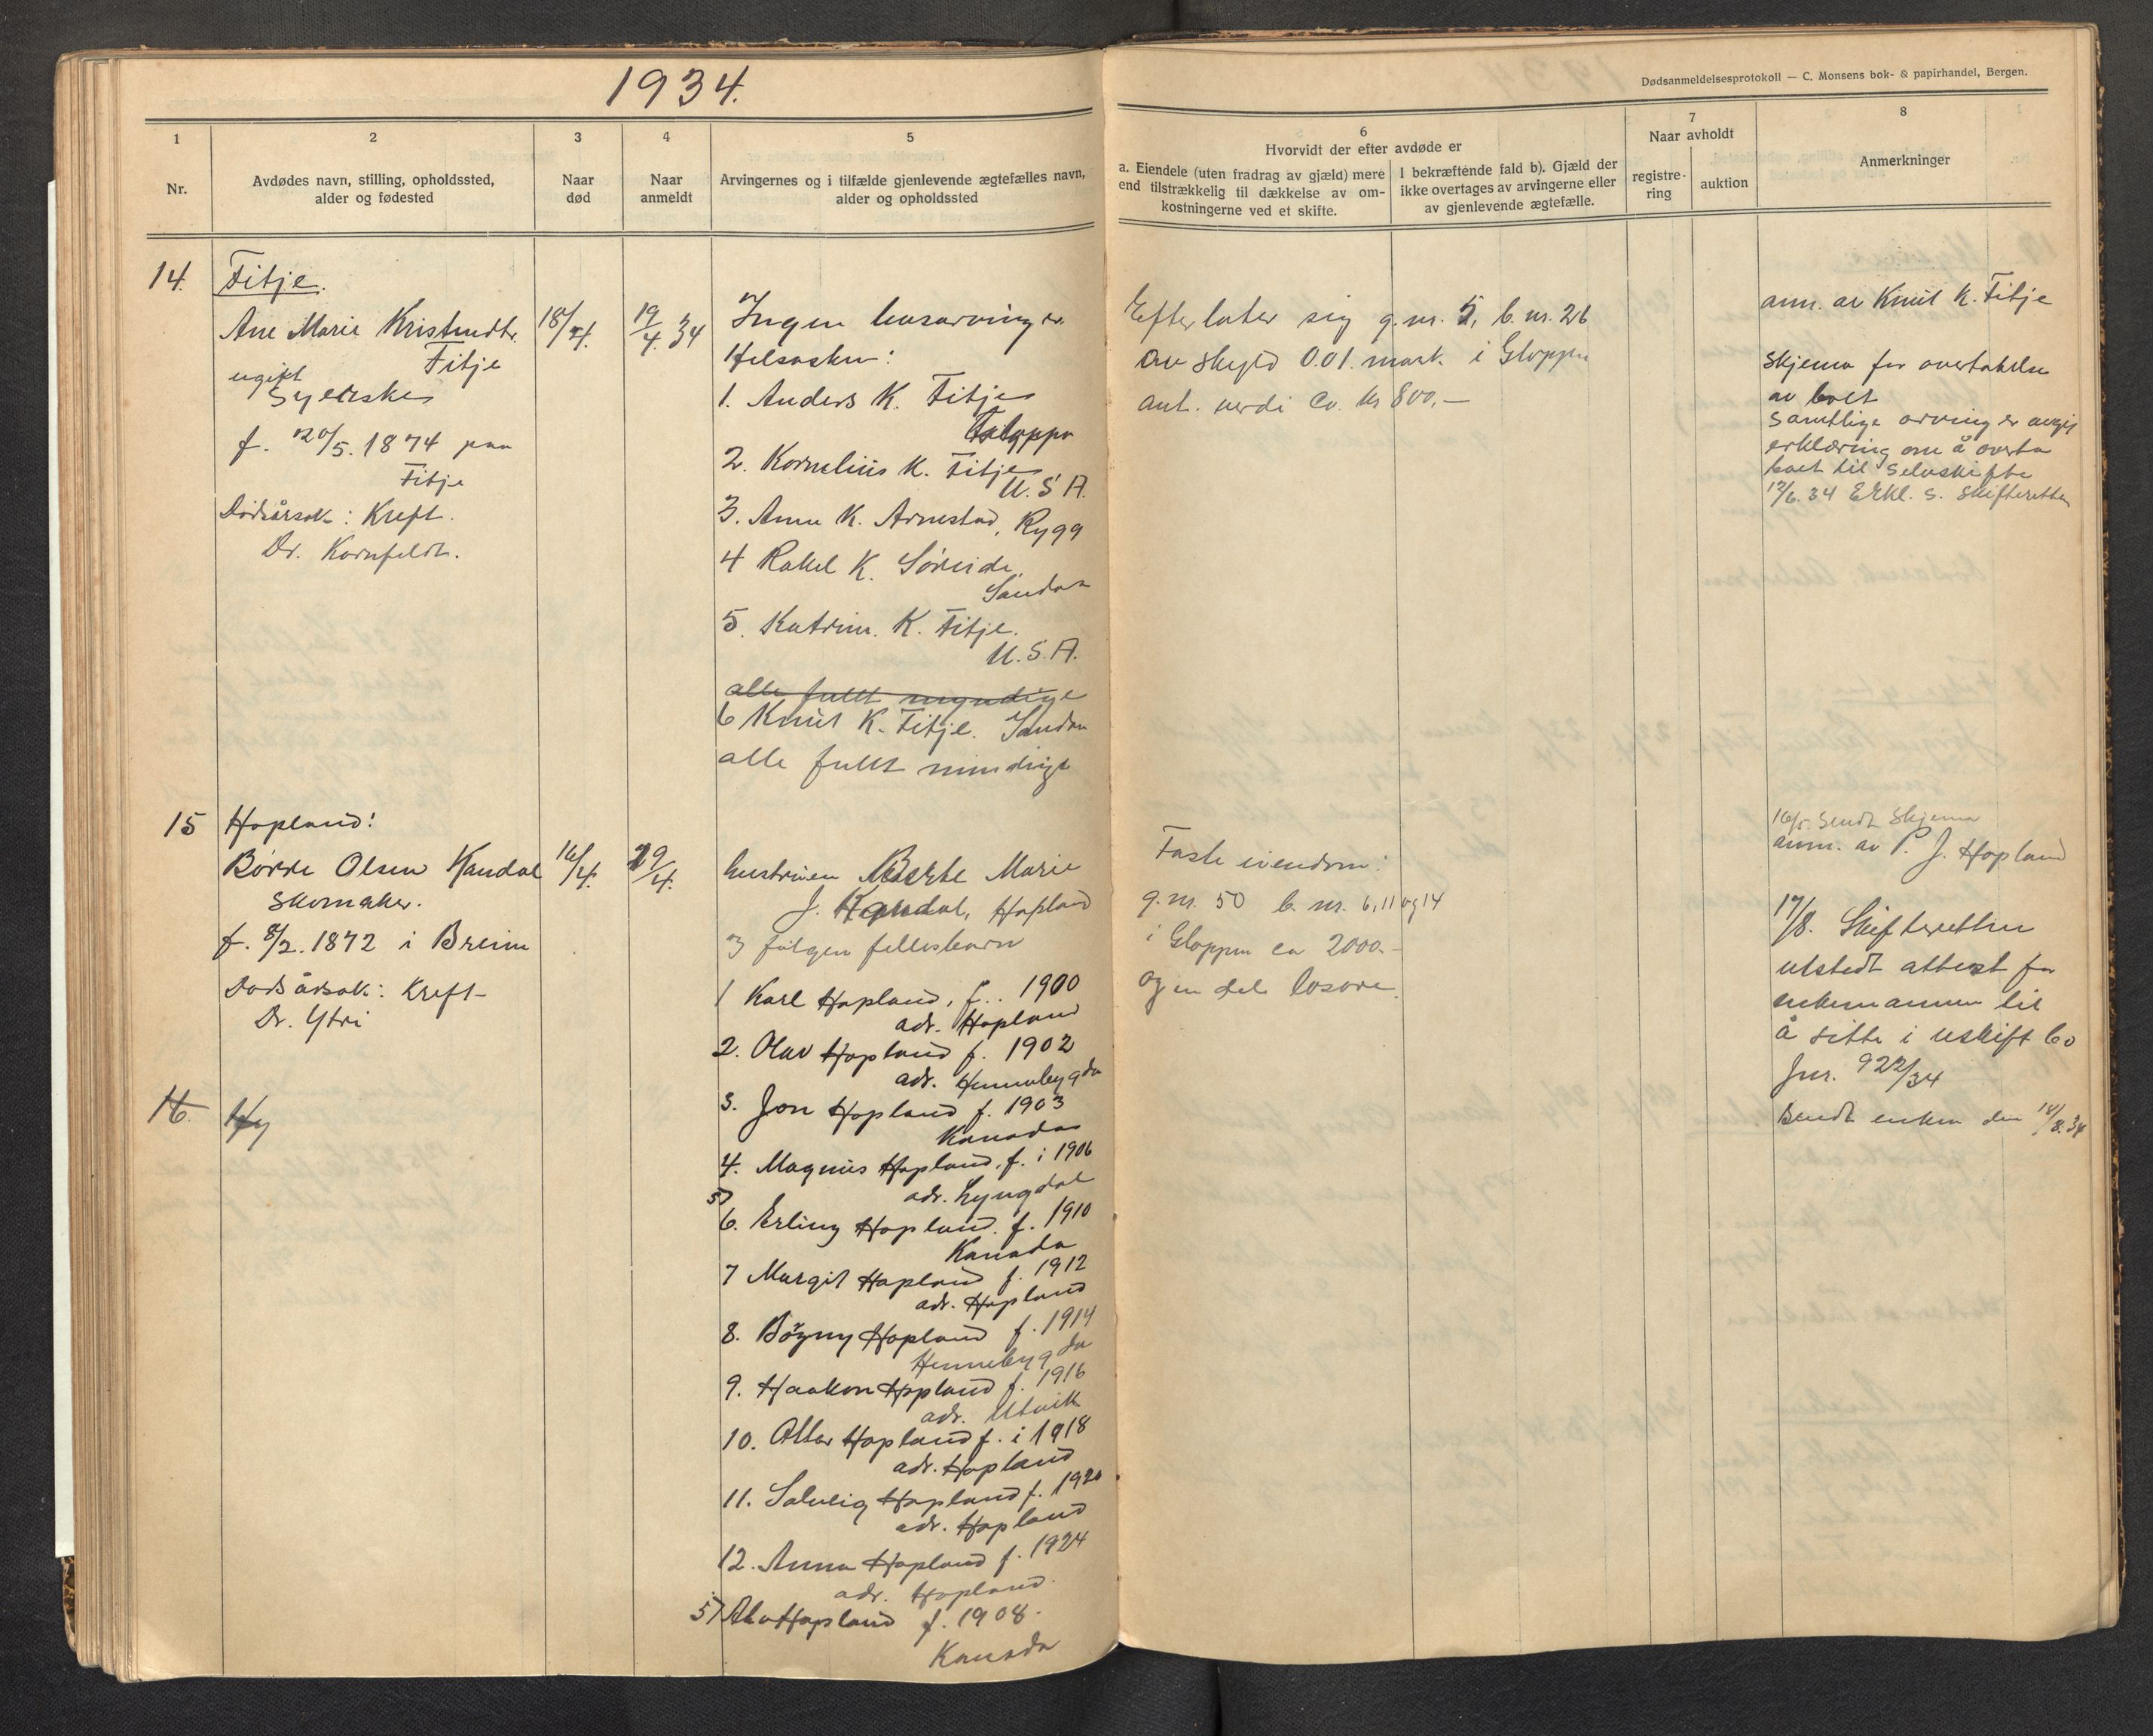 1934.
Dødsanmeldelsesprotokoll — C. Monsens bok- & papirhandel, Bergen.
1
Nr.
2
Avdødes navn, stilling, opholdssted,
alder og fødested
3
Naar
død
4
Naar
anmeldt
5
Arvingernes og i tilfælde gjenlevende ægtefælles navn,
alder og opholdssted
6
Hvorvidt der efter avdøde er
a. Eiendele (uten fradrag av gjæld) mere
end tilstrækkelig til dækkelse av om-
kostningerne ved et skifte.
I bekræftende fald b). Gjæld der
ikke overtages av arvingerne eller
av gjenlevende ægtefælle.
7
Naar avholdt
registre-
ring
auktion
8
Anmerkninger
14.
Fitje.
Ane Marie Kristendtr.
Fitje
ugift
Syerske
f. 20/5. 1874 paa
Fitje
Dødsårsak: Kreft.
Dr. Kornfeldt.
18/4.
19/4. 34
Ingen livsarvinger.
Helsøsken:
1. Anders K. Fitje
Gloppen
2. Kornelius K. Fitje
U. S A.
3. Anne K. Arnestad, Rygg
4 Rakel K. Søreide,
Sandan
5. Katrine. K. Fitje.
U. S. A.
alle fullt myndige
6 Knut K. Fitje. Sandan
alle fullt mindrige
Efterlater sig g. nr. 5, b. nr. 26
av skyld 0.01. mark. i Gloppen
ant. verdi ca. kr 800,—
anm. av Knut K. Fitje
Skjema for overtakelse
av boet
Samtlige arvinger avgij
erklæring om å overta
boet til selvskifte
12/6. 34 Erkl. s. Skifteretten
15
Hopland:
Børre Olsen Kandal
Skomaker.
f. 8/2. 1872 i Breim
Dødsårsak: Kreft-
Dr. Ytri
16/4.
29/4.
hustruen Berte Marie
J. Kandal, Hopland
I følgen fellesbarn
1 Karl Hopland, f.. 1900
adr. Hopland
2. Olav Hopland f. 1902
adr. Hennebygda
3. Jon Hopland f. 1903
Kanada
4. Magnus Hopland, f. i 1906
adr. Lyngdal
5)
6. Erling Hopland. f. 1910
Kanada
7 Margit Hopland f. 1912
adr. Hopland
8. Bógny Hopland f. 1914
Hennebygda
9. Haakon Hopland f. 1916
adr. Utvik
10. Otter Hopland f. i 1918
adr. Hopland
11. Solveig Hopland f. 1920
adr. Hopland
12. Anna Hopland f. 1924
adr. Hopland.
5) Hopland f. 1908.
Kanada
Faste eiendom:
g. nr. 50 b. nr. 6, 11 og 14
i Gloppen ca 2000.-
og en del løsøre.
16/5. Sendt Skjema
anm. av P. J. Hopland
17/8. Skifteretten
utstedt attest for
enkemannen til
å sitte i uskift bo
Jnr. 922/34
Sendt enken den 18/8. 34
16.
Hy